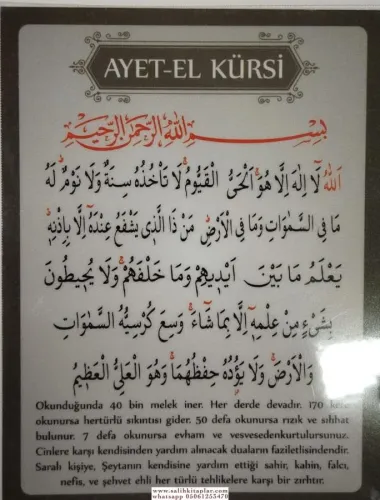 AYET-EL KÜRSİ
بِسْمِ اللهِ الرَّحْمٰنِ الرَّحِيْمِ
اَللهُ لَا اِلٰهَ اِلَّا هُوَ اَلْحَىُّ الْقَيُّومُ لَا تَأْخُذُهُ سِنَةٌ وَلَا نَوْمٌ لَهُ
مَا فِى السَّمٰوَاتِ وَمَا فِى الْاَرْضِ مَنْ ذَا الَّذِى يَشْفَعُ عِنْدَهُ اِلَّا بِاِذْنِهِ
يَعْلَمُ مَا بَيْنَ اَيْدِيهِمْ وَمَا خَلْفَهُمْ وَلَا يُحِيطُونَ
بِشَىْءٍ مِنْ عِلْمِهِ اِلَّا بِمَا شَاءَ وَسِعَ كُرْسِيُّهُ السَّمٰوَاتِ
وَالْاَرْضَ وَلَا يَؤُدُهُ حِفْظُهُمَا وَهُوَ الْعَلِىُّ الْعَظِيمُ
Okunduğunda 40 bin melek iner. Her derde devadır. 170 kere
okunursa hertürlü sıkıntısı gider. 50 defa okunursa rızık ve sıhhat
bulunur. 7 defa okunursa evham ve vesvesedenkurtulursunuz.
Cinlere karşı kendisinden yardım alınacak duaların faziletlisindendir.
Saralı kişiye, Şeytanın kendisine yardım ettiği sahir, kahin, falcı,
nefis, ve şehvet ehli her türlü tehlikelere karşı bir zırhtır.
www.salihkitaplar.com
whatsapp 05061255470